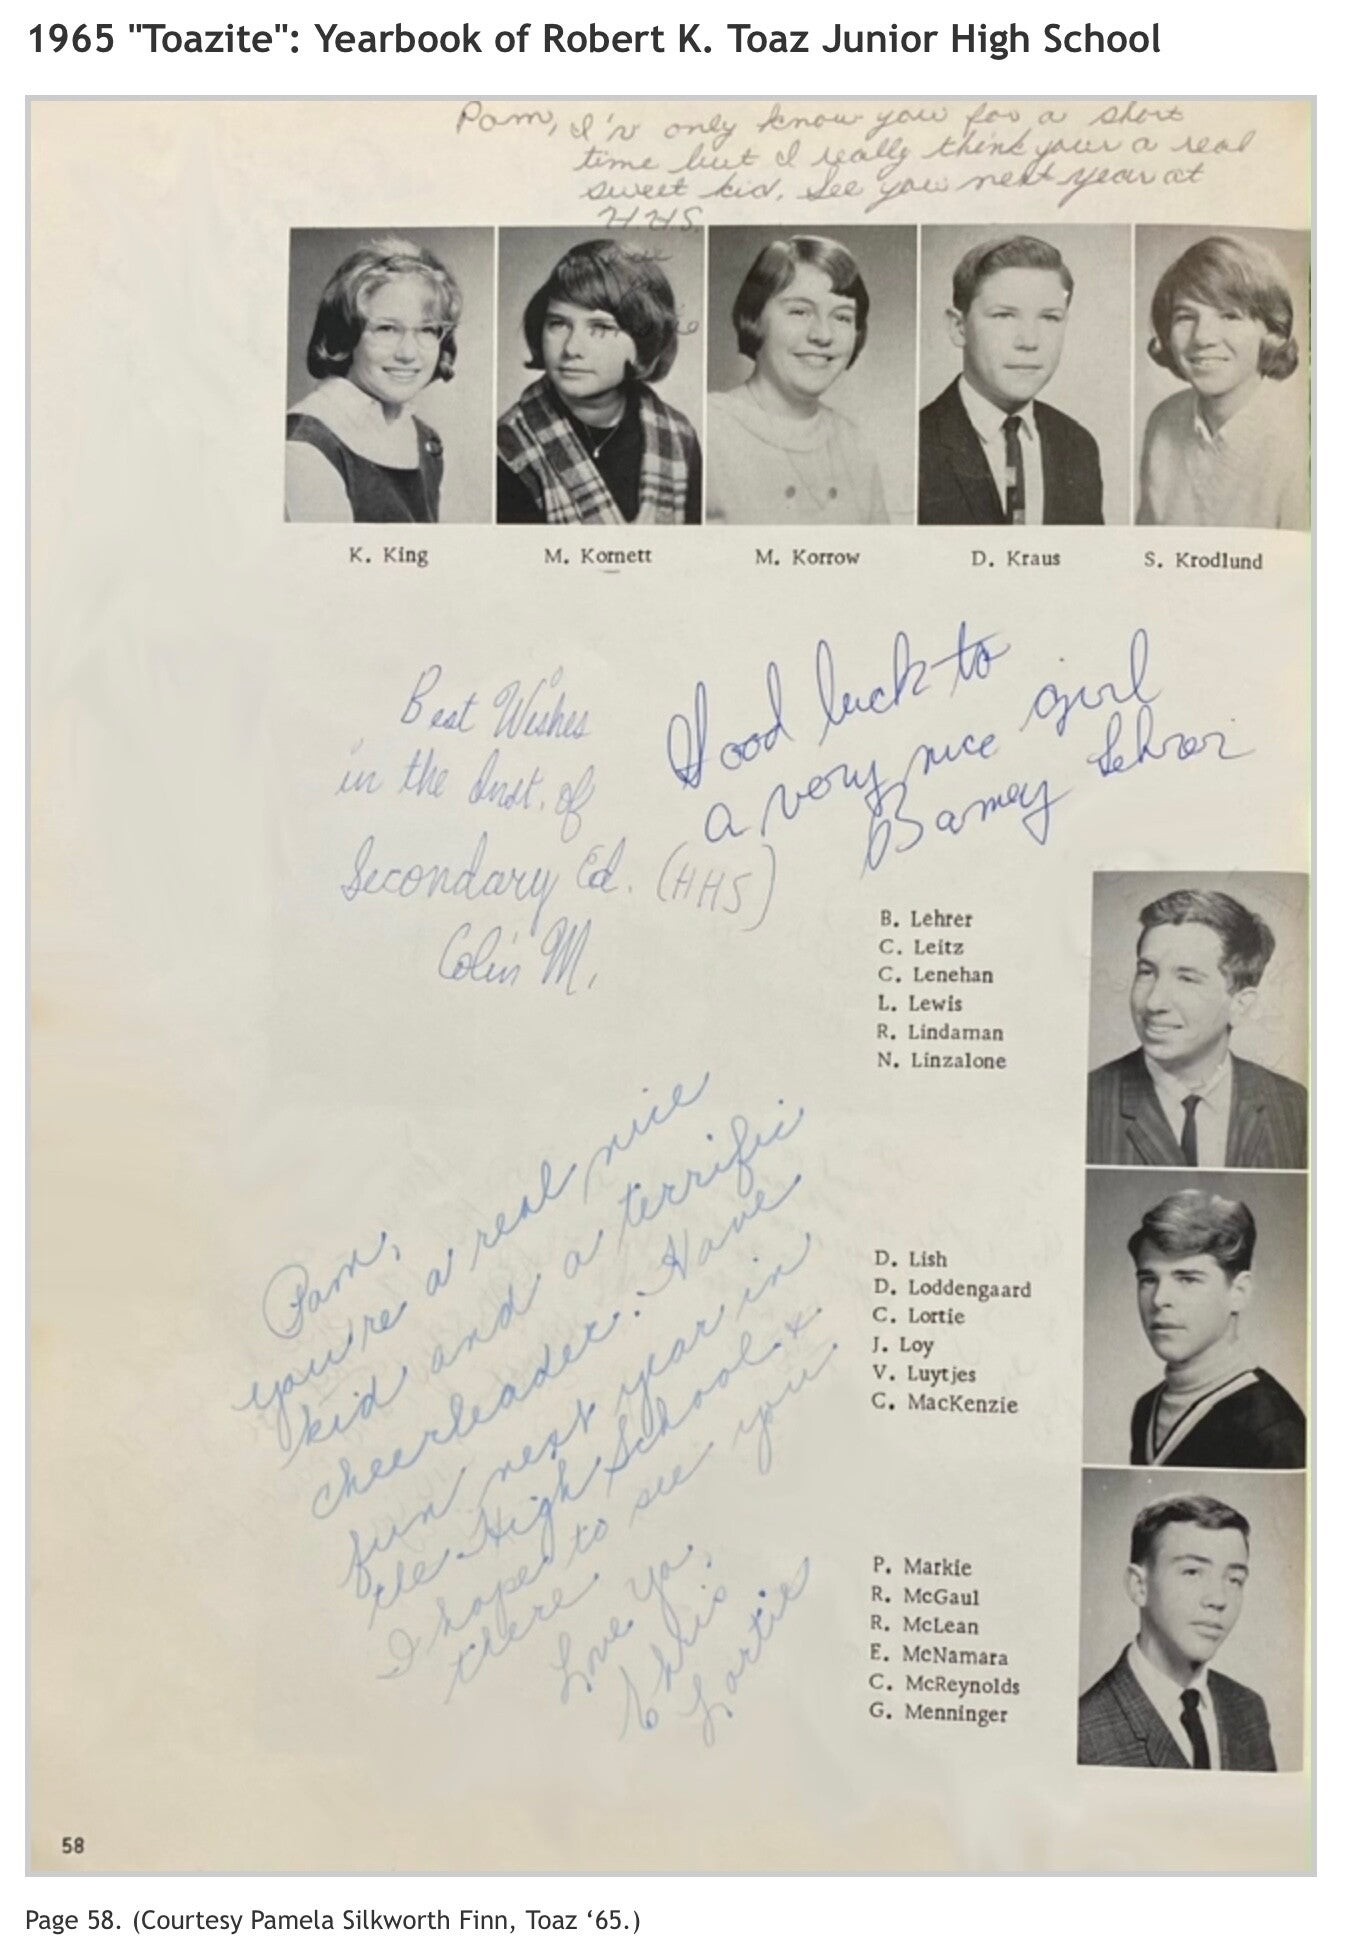 1965 "Toazite": Yearbook of Robert K. Toaz Junior High School
Pam, I'v only know you for a short
time but I really think your a real
sweet kid. See you next year at
H.H.S.
K. King
M. Kornett
M. Korrow
D. Kraus
S. Krodlund
Best Wishes
in the Inst. of
Secondary Ed. (HHS)
Colin M.
Good luck to
a very nice girl
Barney Lehrer
B. Lehrer
C. Leitz
C. Lenehan
L. Lewis
R. Lindaman
N. Linzalone
Pam,
you're a real nice
kid and a terrific
cheerleader. Have
fun next year in
the High School &
I hope to see you
there.
Love ya,
Chris
Lortie
D. Lish
D. Loddengaard
C. Lortie
J. Loy
V. Luytjes
C. MacKenzie
P. Markie
R. McGaul
R. McLean
E. McNamara
C. McReynolds
G. Menninger
58
Page 58. (Courtesy Pamela Silkworth Finn, Toaz ‘65.)